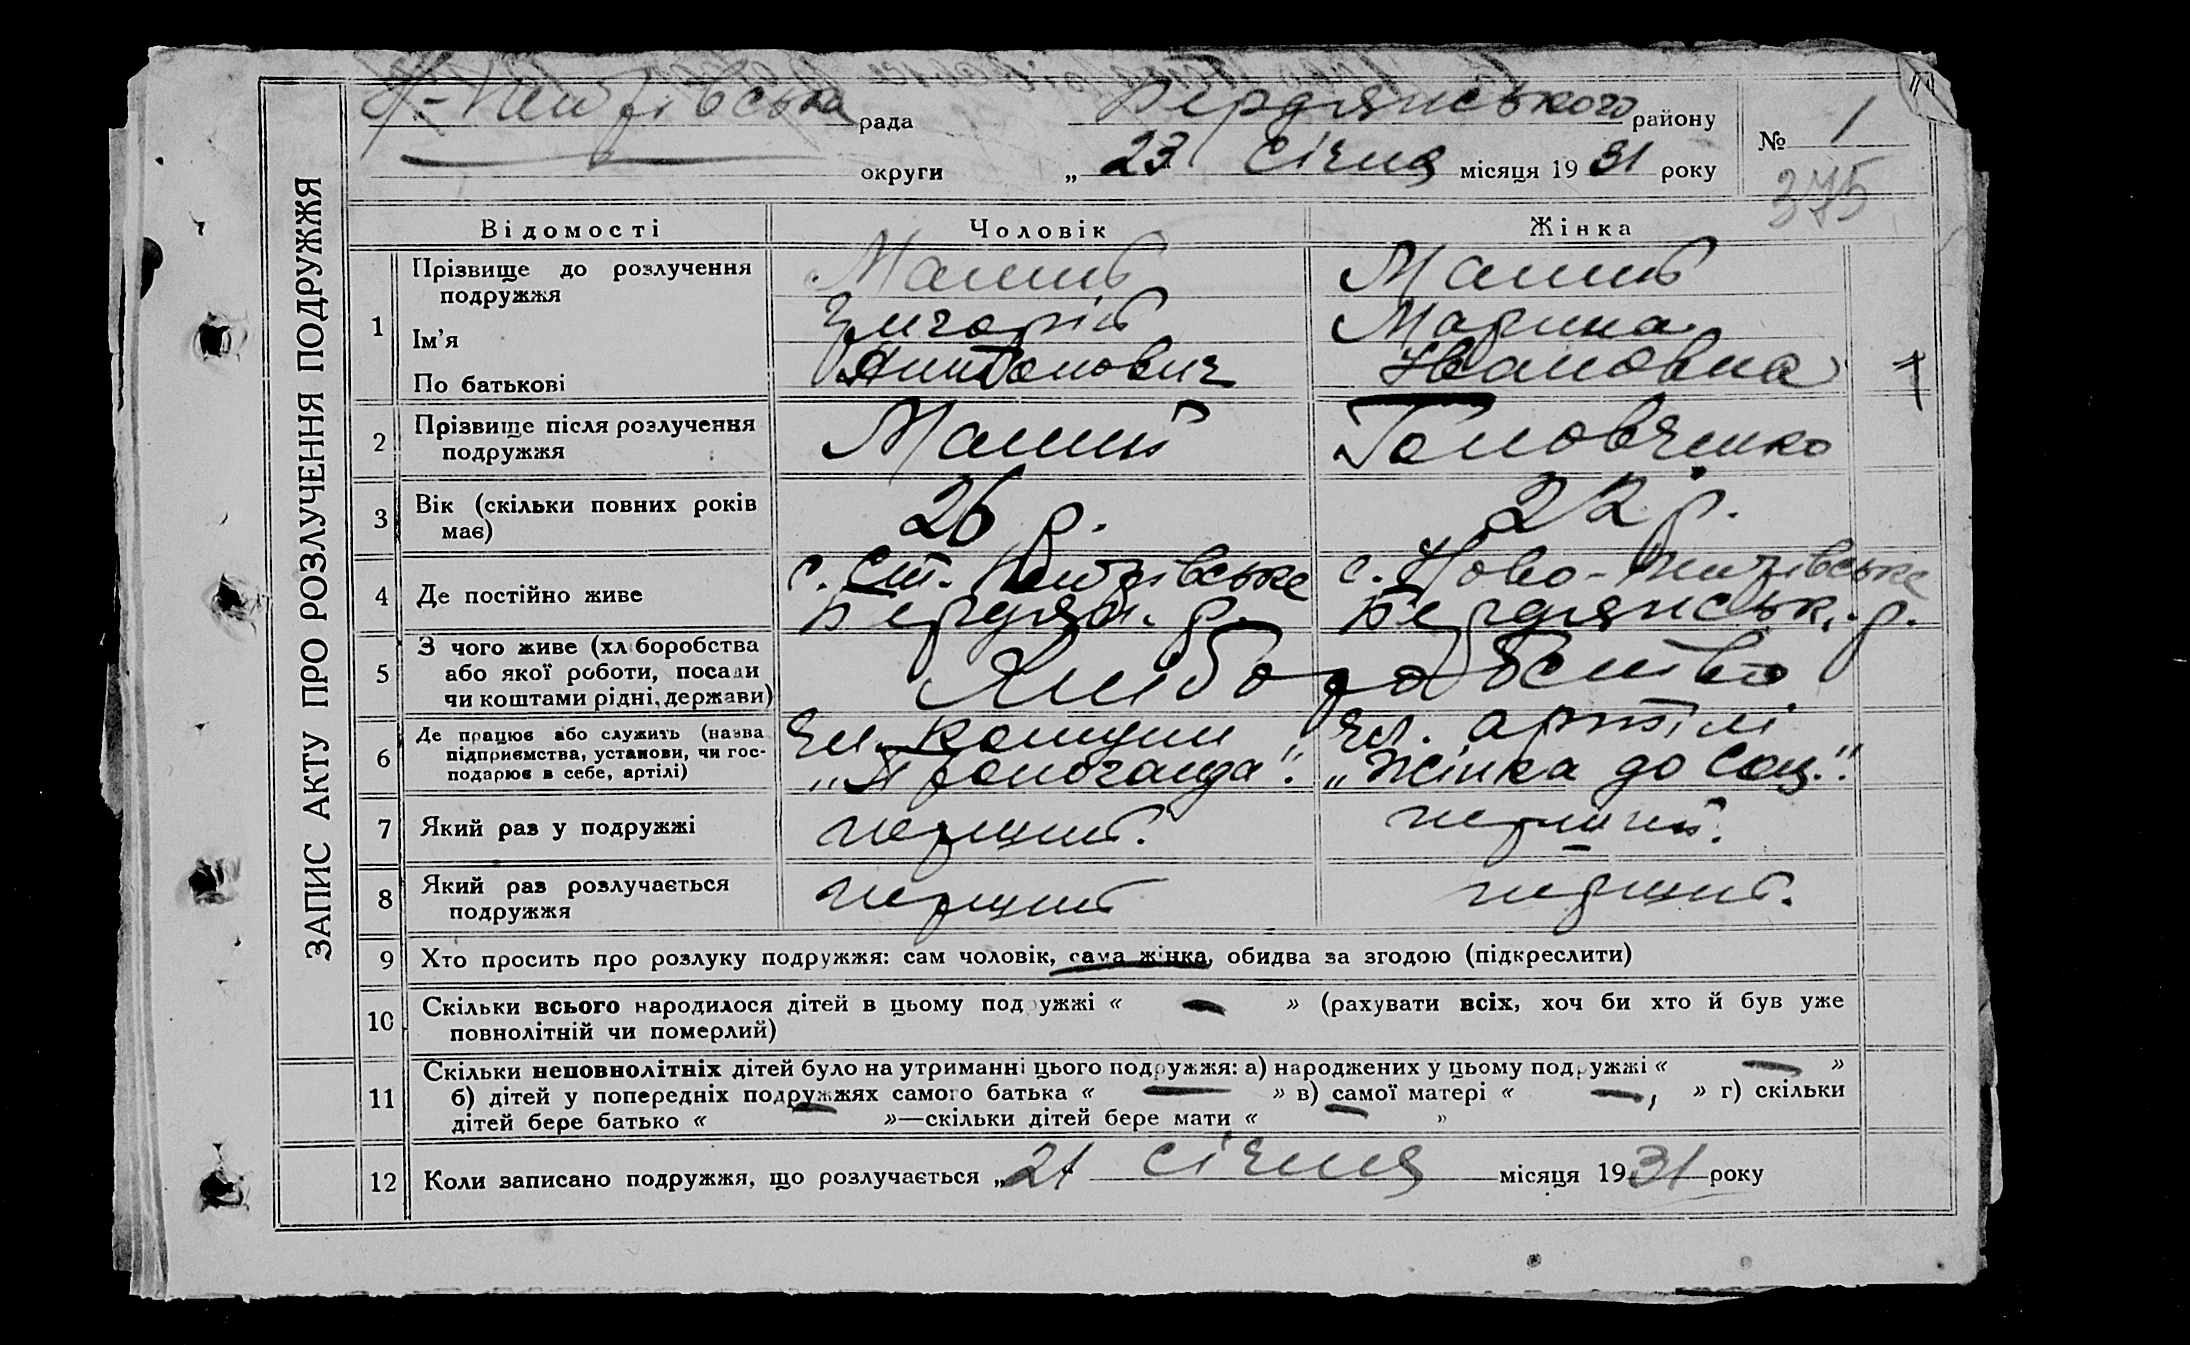 Н-Петрівська рада Бердянського району № 1
округи „ 23 Січня місяця 1931 року
375
ЗАПИС АКТУ ПРО РОЗЛУЧЕННЯ ПОДРУЖЖЯ
Відомості Чоловік Жінка
1 Прізвище до розлучення подружжя Малий Малий
Ім'я Григорій Марина
По батькові Антонович Івановна
2 Прізвище після розлучення подружжя Малий Головченко
3 Вік (скільки повних років має) 26 р. 22 р.
4 Де постійно живе с. Ст. Петрівське Бердян. р. с. Ново-Петрівське Бердянськ. р.
5 З чого живе (хліборобства або якої роботи, посади чи коштами рідні, держави) Хліборобство
6 Де працює або служить (назва підприємства, установи, чи господарює в себе, артілі) Чл. комуни „Пропоганда". Чл. артілі „Жінка до Соц."
7 Який раз у подружжі перший. перший.
8 Який раз розлучається подружжя перший перший.
9 Хто просить про розлуку подружжя: сам чоловік, сама жінка, обидва за згодою (підкреслити)
10 Скільки всього народилося дітей в цьому подружжі « — » (рахувати всіх, хоч би хто й був уже
повнолітній чи померлий)
11 Скільки неповнолітніх дітей було на утриманні цього подружжя: а) народжених у цьому подружжі « — »
б) дітей у попередніх подружжях самого батька « — » в) самої матері « —, » г) скільки
дітей бере батько « — »—скільки дітей бере мати « — »
12 Коли записано подружжя, що розлучається „21 січня місяця 1931 року